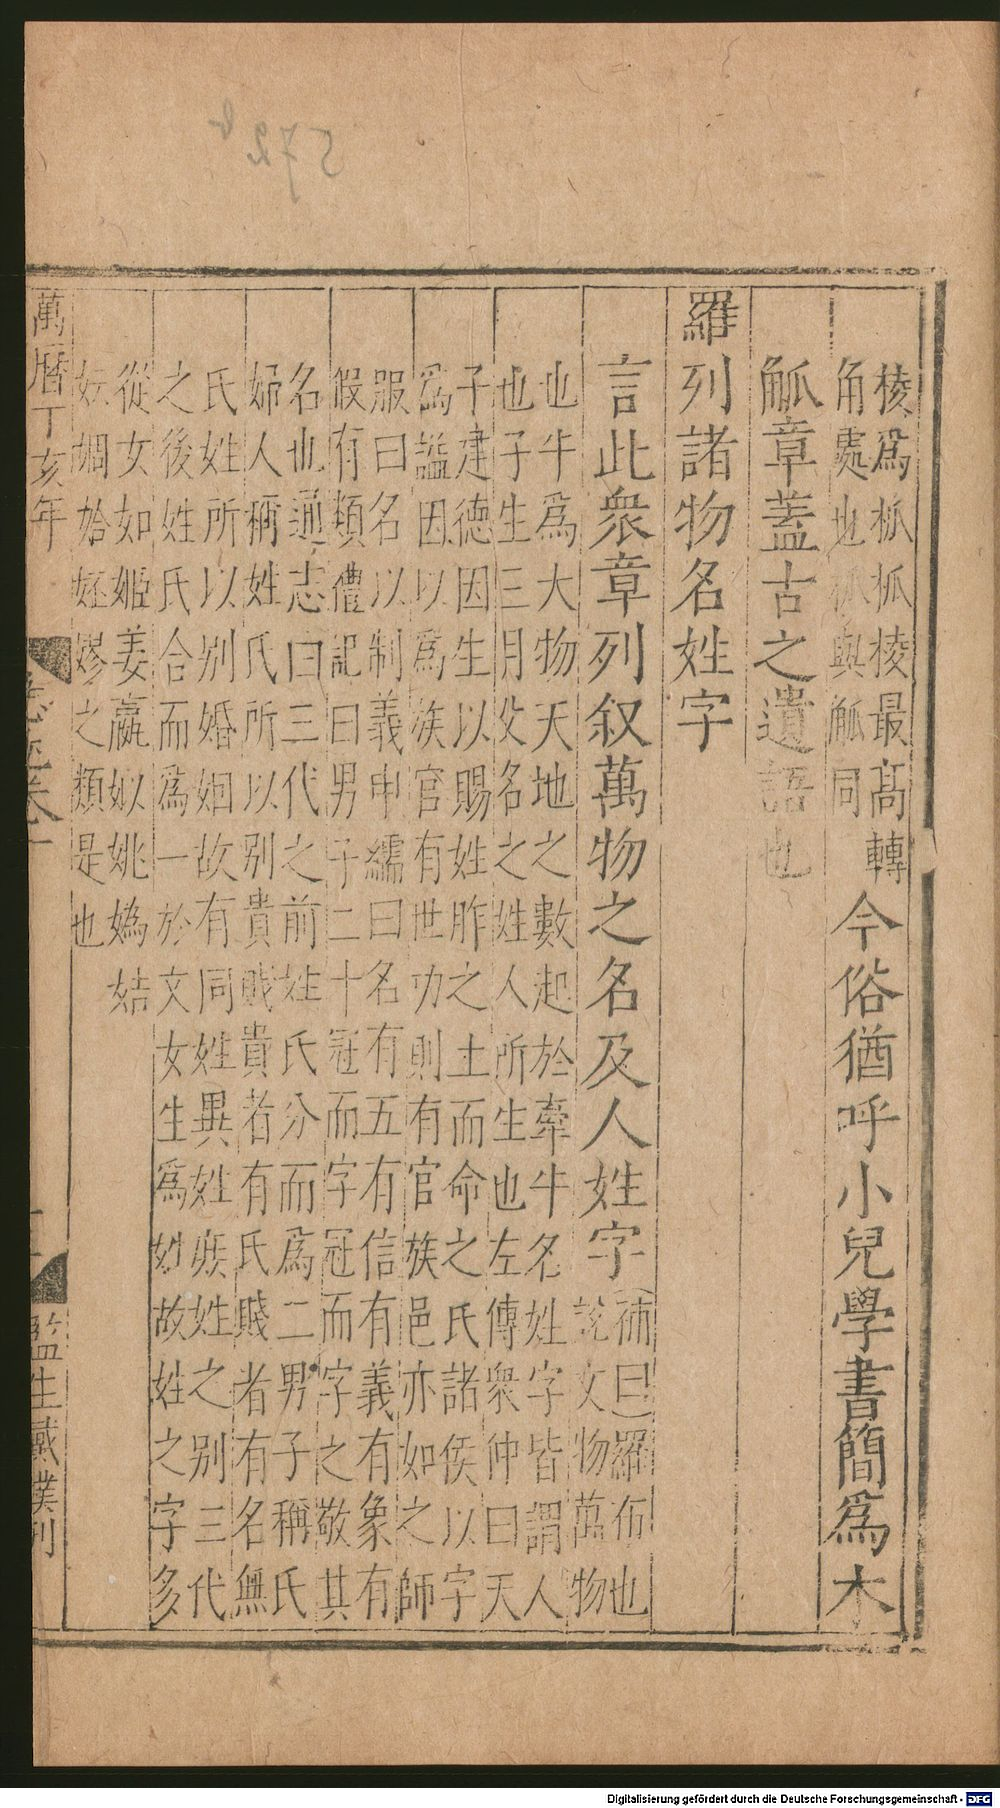 572b
棱爲柧柧棱最髙轉
角處也柧與觚同
今俗猶呼小兒學書簡爲木
觚章蓋古之遺語也
羅列諸物名姓字
言此衆章列叙萬物之名及人姓字
補曰羅布也
説文物萬物
也牛爲大物天地之數起於牽牛名姓字皆謂人
也子生三月父名之姓人所生也左傳衆仲曰天
子建德因生以賜姓胙之土而命之氏諸侯以字
爲謚因以爲族官有世功則有官族邑亦如之師
服曰名以制義申繻曰名有五有信有義有象有
假有類禮記曰男子二十冠而字冠而字之敬其
名也通志曰三代之前姓氏分而爲二男子稱氏
婦人稱姓氏所以別貴賤貴者有氏賤者有名無
氏姓所以別婚姻故有同姓異姓庻姓之別三代
之後姓氏合而爲一於文女生爲姓故姓之字多
從女如姬姜嬴姒姚嬀姞
妘婤姶㛗嫪之類是也
萬曆丁亥年
急就卷一
監生戴僕刊
Digitalisierung gefördert durch die Deutsche Forschungsgemeinschaft - DFG